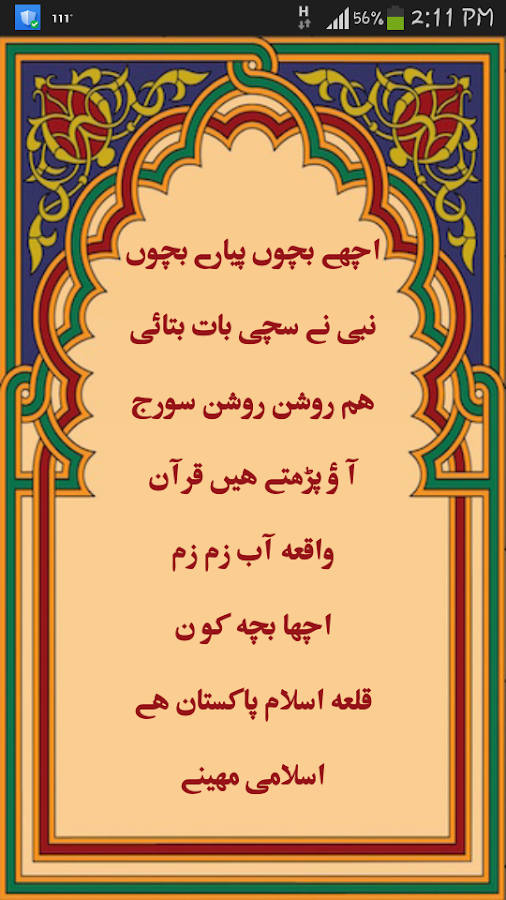 111°
H 56% 2:11 PM
اچھے بچوں پیارے بچوں
نبی نے سچی بات بتائی
ھم روشن روشن سورج
آ ؤ پڑھتے ھیں قرآن
واقعہ آب زم زم
اچھا بچہ کو ن
قلعہ اسلام پاکستان ھے
اسلامی مھینے